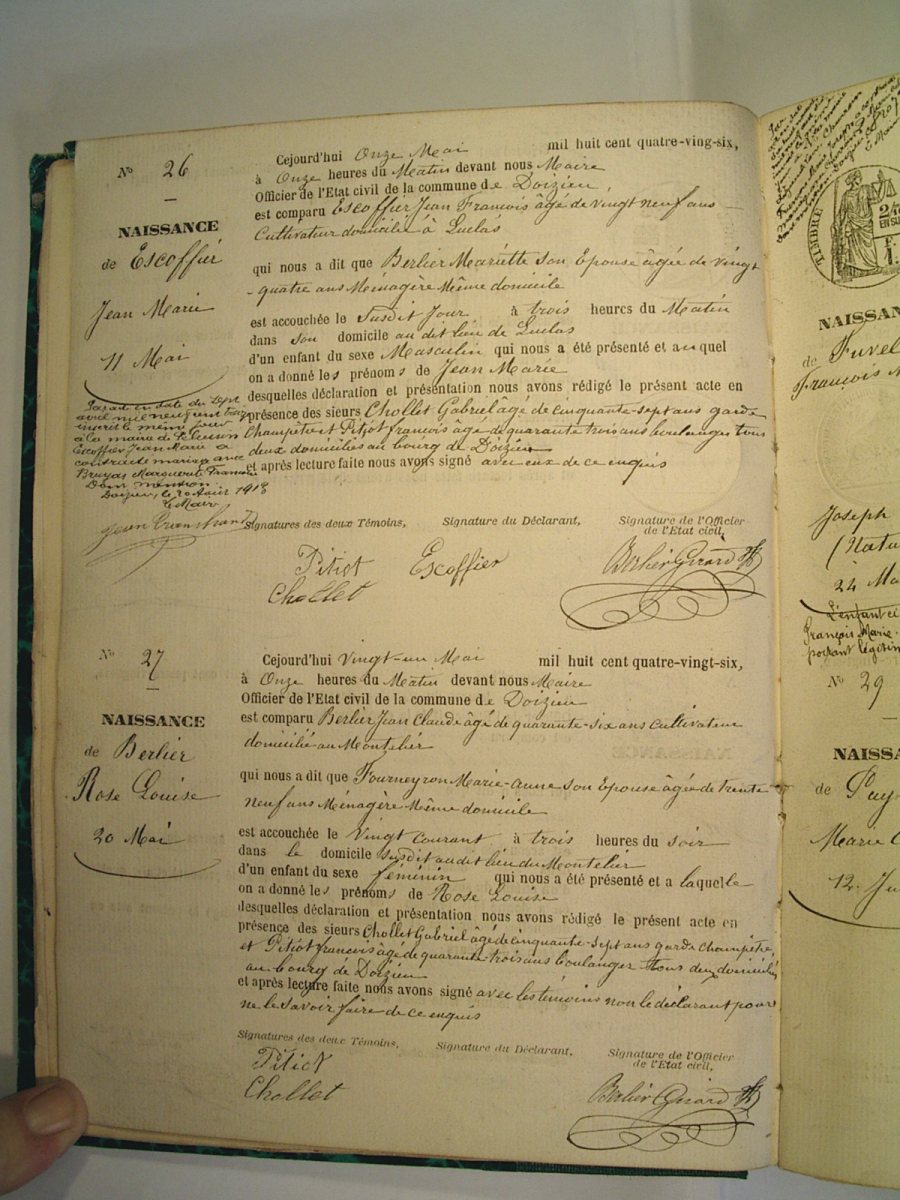 Nº 26
NAISSANCE
de Escoffier
Jean Marie
11 Mai
Cejourd'hui Onze Mai mil huit cent quatre-ving-six,
à Onze heures du Matin devant nous Maire
Officier de l'Etat civil de la commune de Doizieu,
est comparu Escoffier Jean François âgé de vingt neuf ans
Cultivateur domicilié à Luclas
qui nous a dit que Berlier Mariette son Epouse âgée de vingt
-quatre ans Ménagère Même domicile
est accouchée le Susdit Jour à trois heures du Matin
dans son domicile au dit lieu de Luclas
d'un enfant du sexe Masculin qui nous a été présenté et auquel
on a donné les prénoms de Jean Marie
desquelles déclaration et présentation nous avons rédigé le présent acte en
présence des sieurs Chollet Gabriel âgé de cinquante-sept ans garde
Champêtre et Pitiot françois âgé de quarante trois ans boulanger tous
deux domiciliés au bourg de Doizieu
et après lecture faite nous avons signé avec eux de ce enquis
Par acte en date du Sept
avril mil neuf cent
inscrit le même jour
à la mairie de Pélussin
Escoffier Jean Marie a
contracté mariage avec
Bruyas Marguerite
Dont mention
Doizieu, le 20 Août 1918
Le Maire
Signatures des deux Témoins, Signature du Déclarant, Signature de l'Officier
de l'Etat civil,
Pitiot Escoffier Berlier Girard
Chollet
Nº 27
NAISSANCE
de Berlier
Rose Louise
20 Mai
Cejourd'hui Vingt-un Mai mil huit cent quatre-vingt-six,
à Onze heures du Matin devant nous Maire
Officier de l'Etat civil de la commune de Doizieu
est comparu Berlier Jean Claude âgé de quarante-six ans cultivateur
domicilié au Montelier
qui nous a dit que Fourneyron Marie-anne son Epouse âgée de trente
neuf ans Ménagère Même domicile
est accouchée le Vingt courant à trois heures du soir
dans le domicile susdit au dit lieu du Montelier
d'un enfant du sexe féminin qui nous a été présenté et a laquelle
on a donné les prénoms de Rose Louise
desquelles déclaration et présentation nous avons rédigé le présent acte en
présence des sieurs Chollet Gabriel âgé de cinquante-sept ans garde champêtre
et Pitiot françois âgé de quarante-trois ans boulanger tous deux domiciliés
au bourg de Doizieu
et après lecture faite nous avons signé avec les témoins non le déclarant pour
ne le savoir faire de ce enquis
Signatures des deux Témoins, Signature du Déclarant, Signature de l'Officier
de l'Etat civil,
Pitiot
Chollet Berlier Girard
TIMBRE
NAISSAN
de Juvel
François
Joseph
(Natu
24 Ma
L'enfant ci
François Marie
Nº 29
NAISSA
de Puy
Marie C
12 Ju